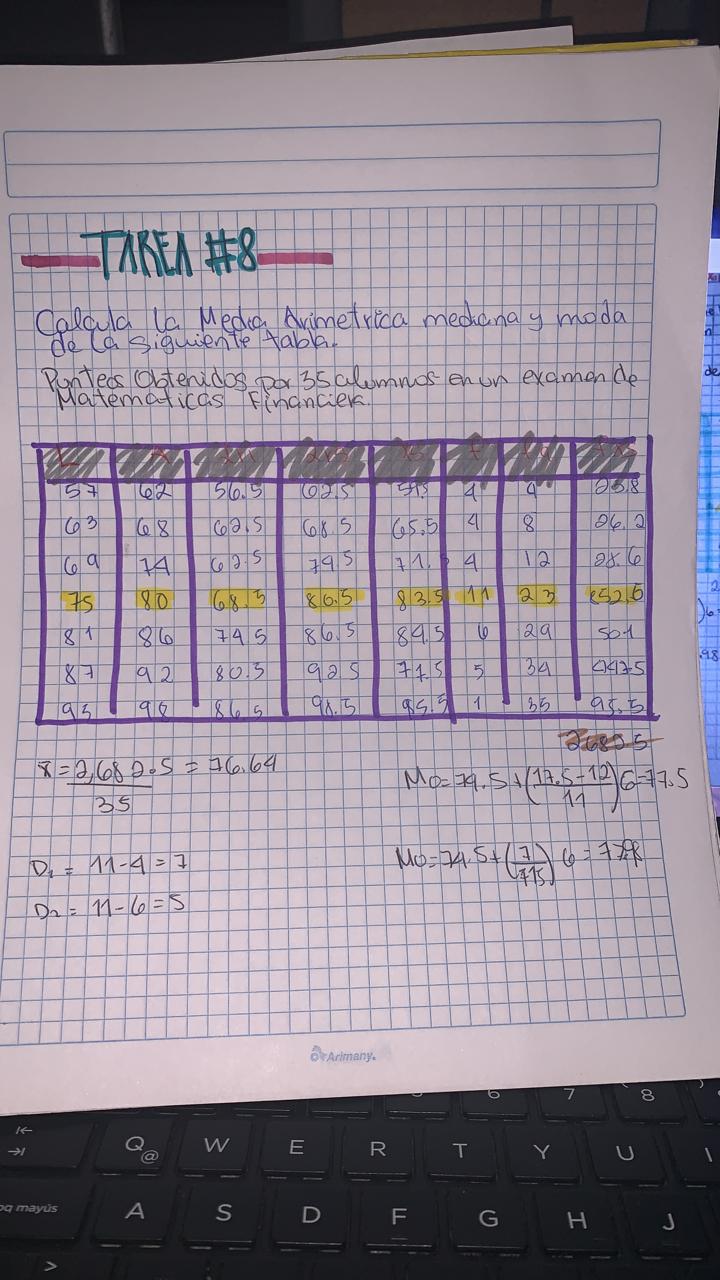 TAREA #8
Calcula la Media Arimetrica mediana y moda
de la siguiente tabla.
Punteos Obtenidos por 35 alumnos en un examen de
Matematicas Financiera.
57 62 56.5 62.5 59.5 4 4 23.8
63 68 62.5 68.5 65.5 4 8 26.2
69 74 62.5 74.5 71. 4 12 28.6
75 80 68.5 80.5 83.5 11 23 852.5
81 86 74.5 86.5 84.5 6 29 501
87 92 80.5 92.5 77.5 5 34 447.5
93 98 86.5 98.5 95.5 1 35 95.5
2682.5
x̄ = 2,682.5 = 76.64
35
Mo = 74.5 + (17.5-12) 6 = 77.5
11
D₁ = 11 - 4 = 7
Mo = 74.5 + (7) 6 =
D₂ = 11 - 6 = 5
Arimany.
6 7 8
Q @ W E R T Y U I
oq mayús A S D F G H J
>